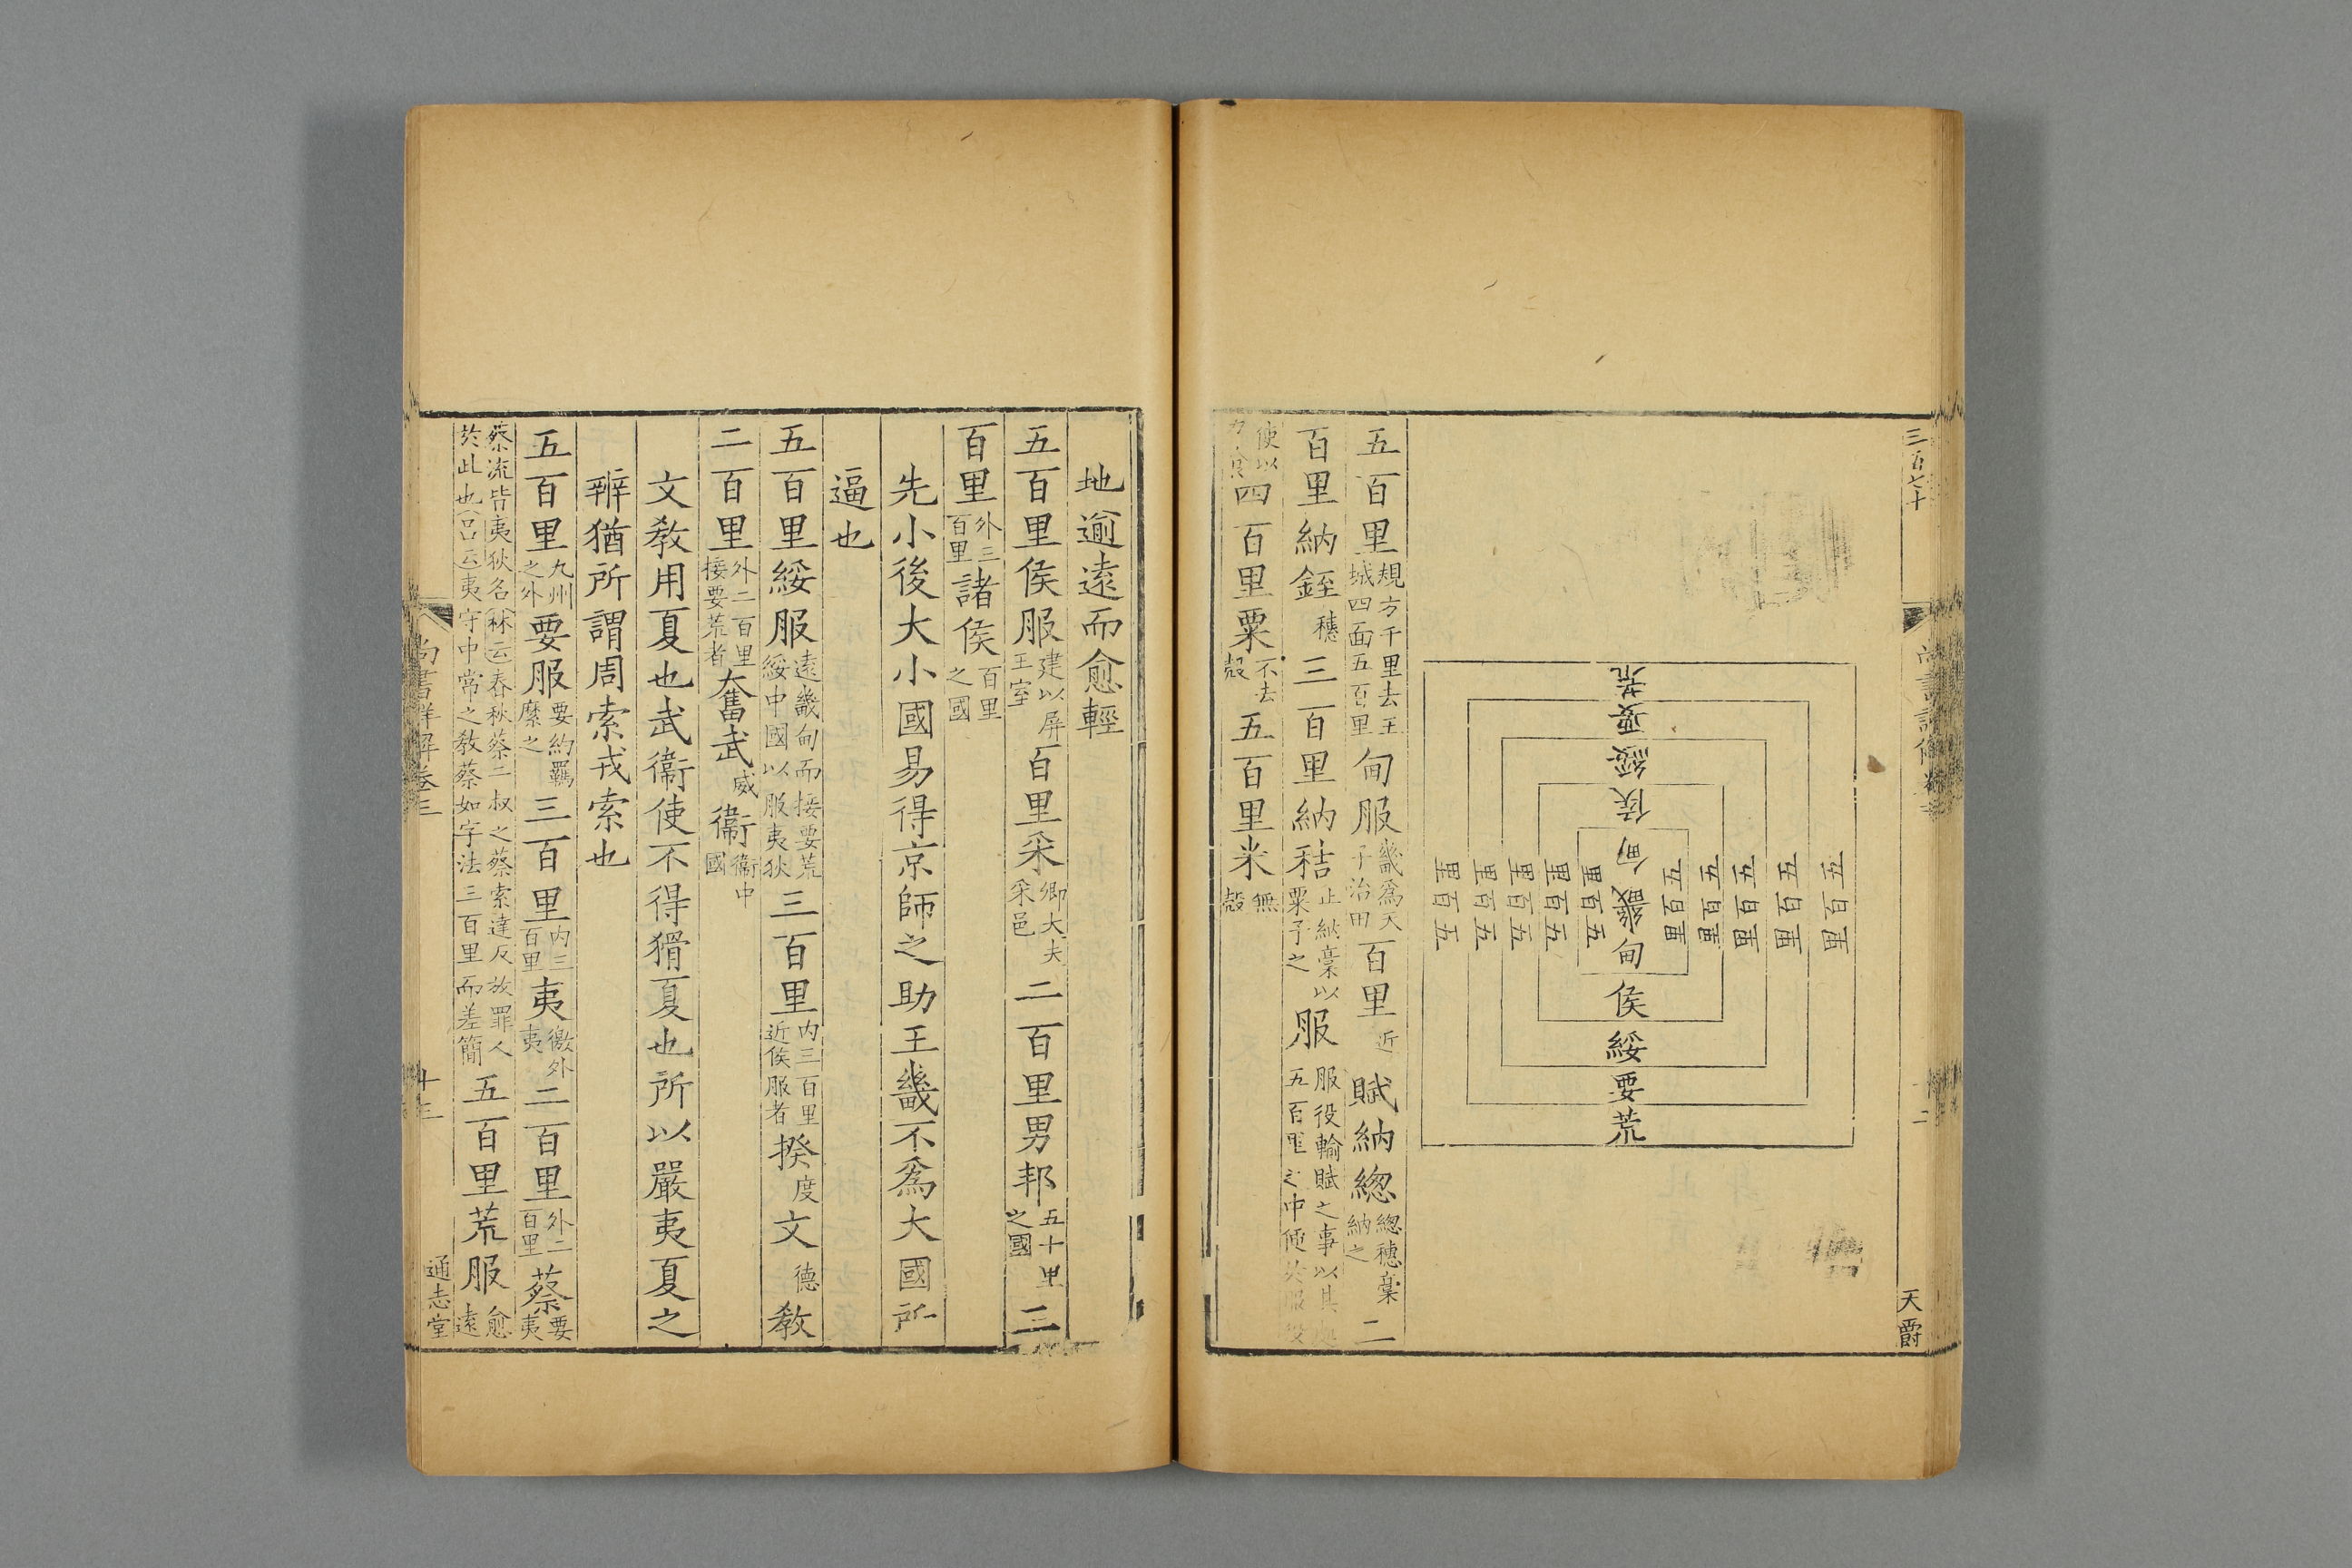 三百七十
天爵
荒
要
綏
侯
甸
畿
甸
侯
綏
要
荒
五百里
五百里
五百里
五百里
五百里
五百里
五百里
五百里
五百里
五百里
五百里規方千里去王城四面五百里甸服畿為天子治田百里近賦納緫緫穗藁納之二
百里納銍穗三百里納秸止納藁以粟予之服服役輸賦之事以其處五百里之中便於服役
使以四百里粟不去殼五百里米無殼
地逾遠而愈輕
五百里侯服建以屏王室百里采卿大夫采邑二百里男邦五十里之國三
百里外三百里諸侯百里之國
先小後大小國易得京師之助王畿不為大國所
逼也
五百里綏服遠畿甸而接要荒綏中國以服夷狄三百里內三百里近侯服者揆度文德教
二百里外二百里接要荒者奮武威衞衞中國
文教用夏也武衞使不得猾夏也所以嚴夷夏之
辨猶所謂周索戎索也
五百里九州之外要服要約羈縻之三百里內三百里夷徼外夷二百里外二百里蔡要夷
蔡流皆夷狄名林云春秋蔡二叔之蔡索達反放罪人於此也呂云夷守中常之教蔡如字法三百里而差簡五百里荒服愈遠
尚書詳解卷三
十三
通志堂